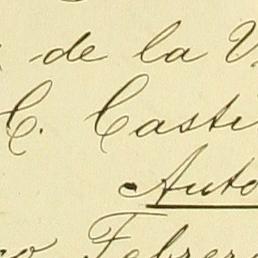 de la V
C. Caste
Auto
Febrer